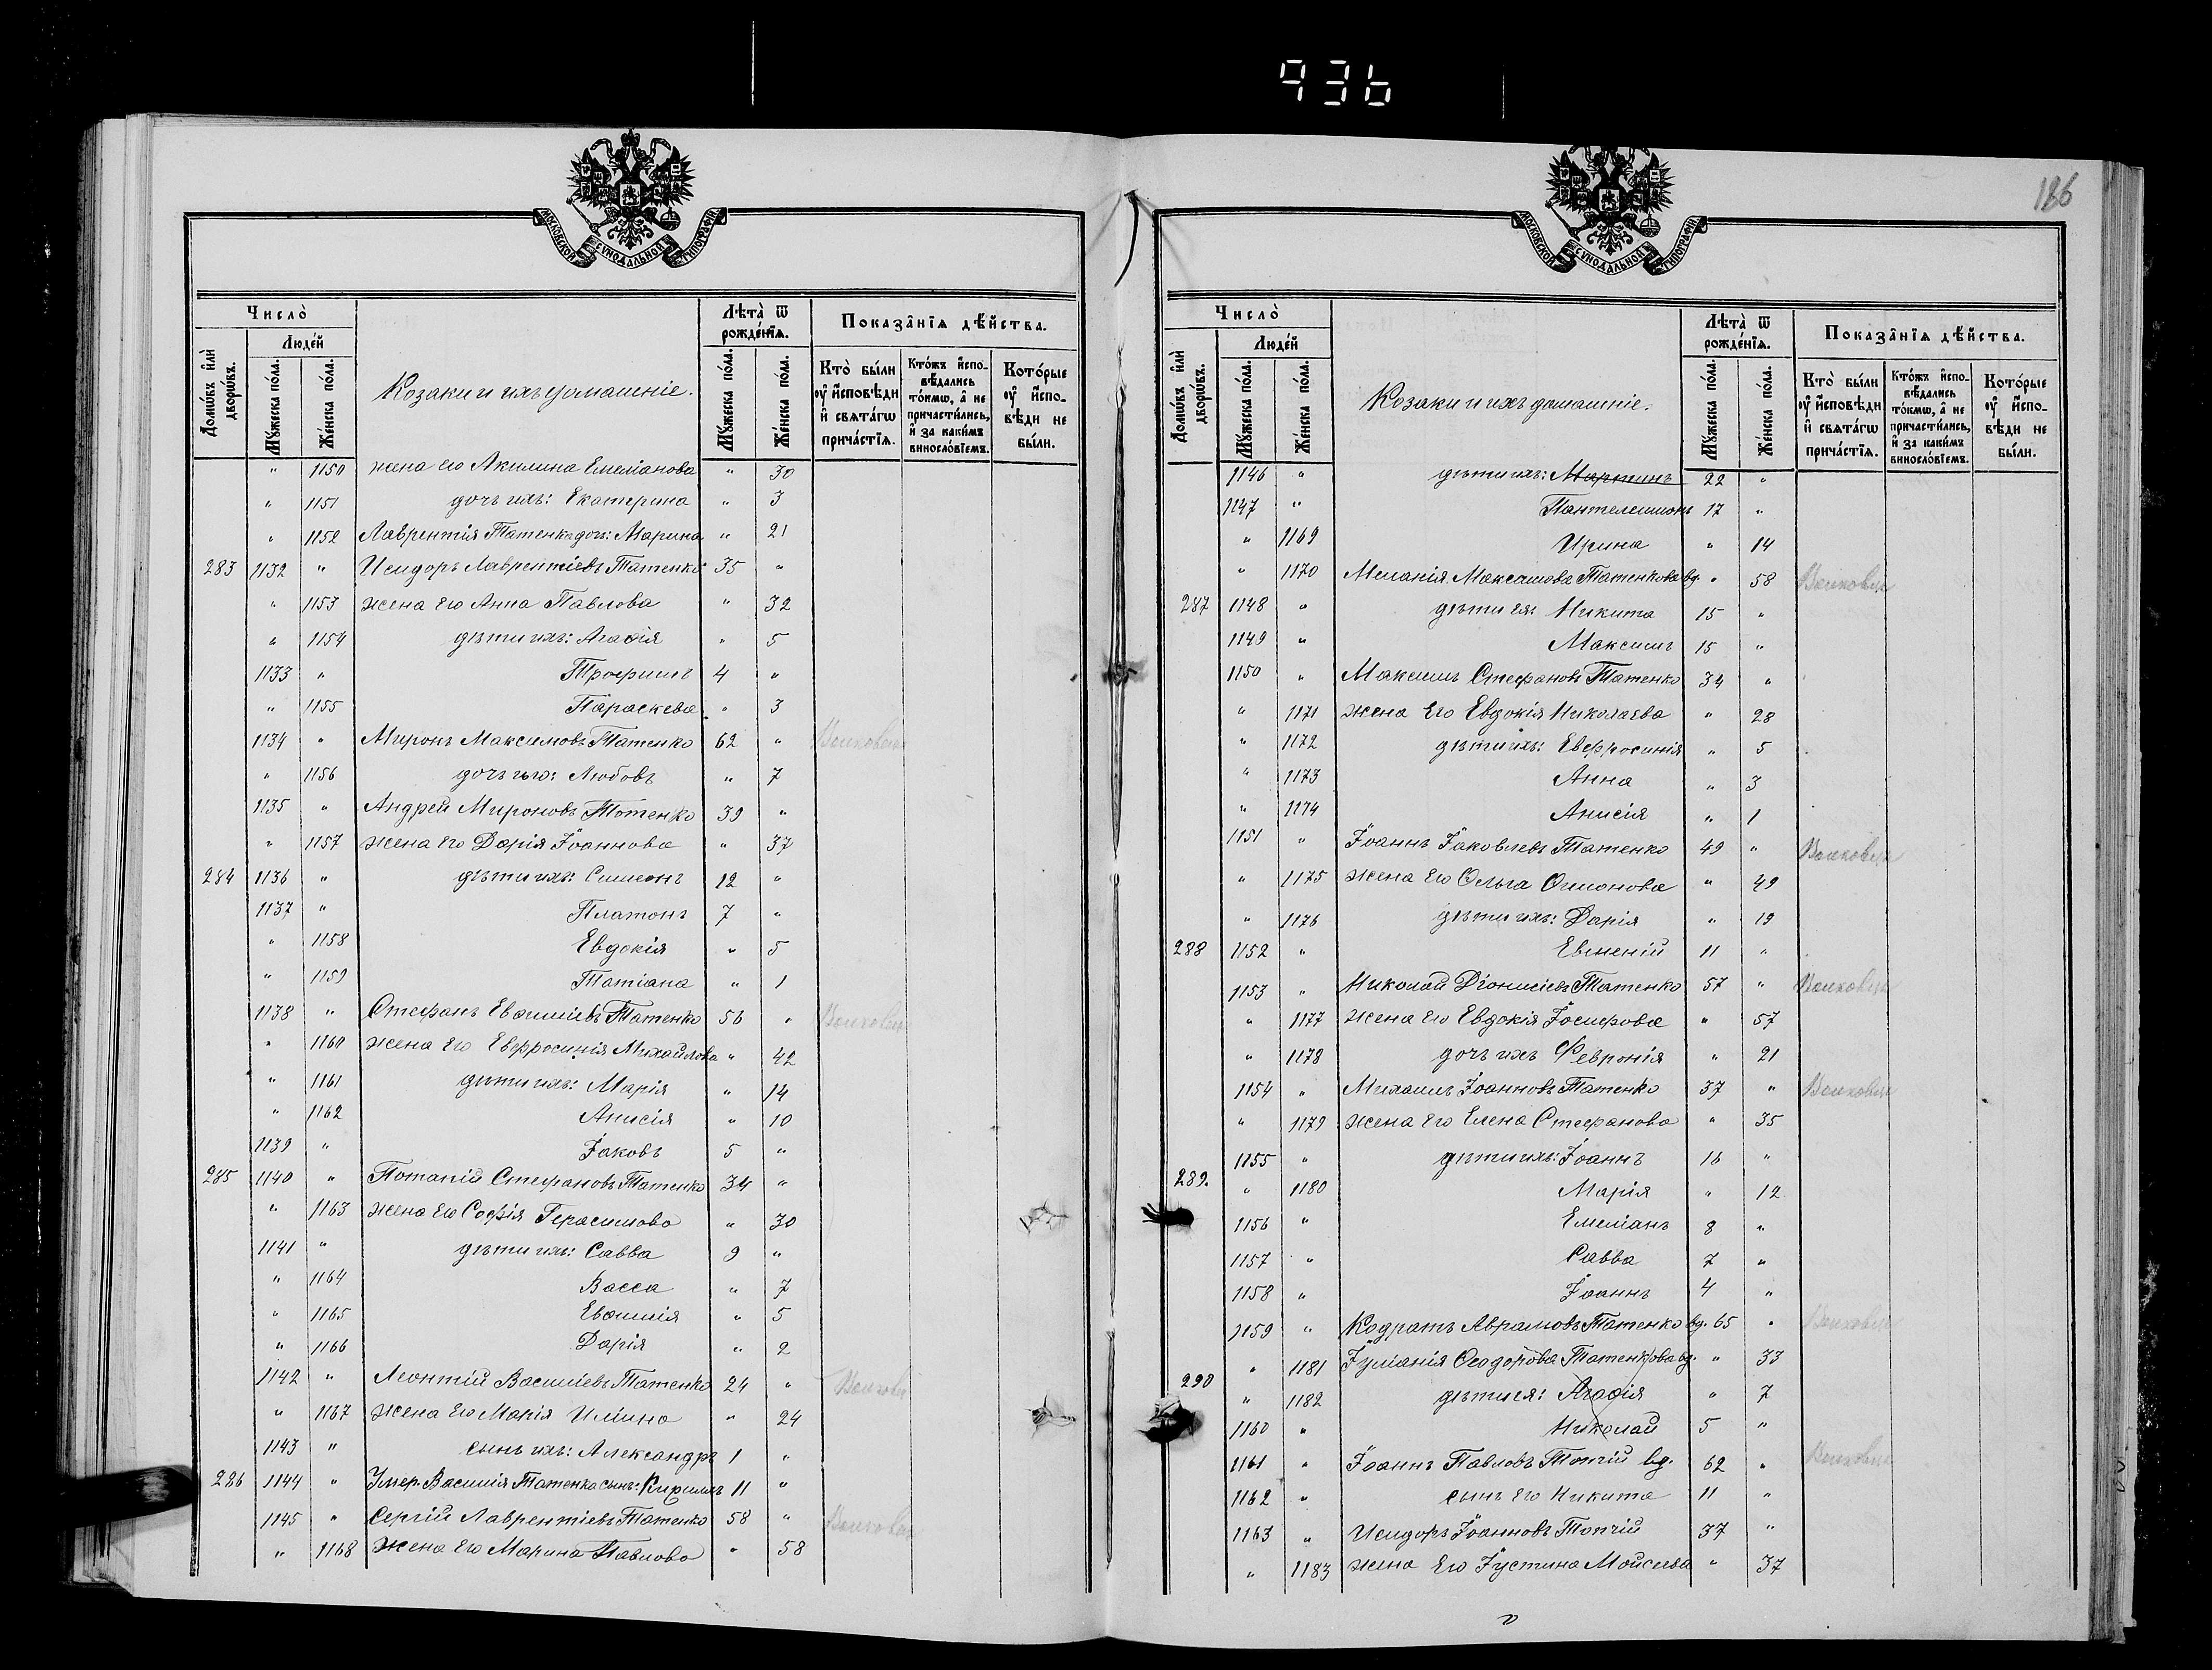 936
МОСКОВСКОЙ СУНОДАЛЬНОЙ ТИПОГРАФІИ
Число̀
Люде́й
Домѡ́въ и҆лѝ дворѡ́въ.
Мꙋ́жеска по́ла.
Же́нска по́ла.
Козаки и ихъ домашніе.
Лѣта̀ ѿ рожде́нїѧ.
Мꙋ́жеска по́ла.
Же́нска по́ла.
Показа̑нїѧ дѣ́йства.
Кто̀ бы́ли ᲂу҆ и҆сповѣди и҆ свѧта́гѡ прича́стїѧ.
Кто́жъ и҆спо-вѣдались то́кмѡ, а҆ не причасти́лись, и҆ за каки́мъ винословїемъ.
Кото́рые ᲂу҆ и҆спо-вѣди не бы́ли.
" 1150 жена его Акилина Емеліанова " 30
" 1151 дочь ихъ: Екатерина " 3
" 1152 Лаврентія Татенка дочь: Марина " 21
283 1132 " Исидоръ Лаврентіевъ Татенко 35 "
" 1153 жена его Анна Павлова " 32
" 1154 дѣти ихъ: Агаѳія " 5
1133 " Трофимъ 4 "
" 1155 Параскева " 3
1134 " Миронъ Максимовъ Татенко 62 "
" 1156 дочь его: Любовь " 7
1135 " Андрей Мироновъ Татенко 39 "
" 1157 жена его Дарія Іоаннова " 37
284 1136 " дѣти ихъ: Симеонъ 12 "
1137 " Платонъ 7 "
" 1158 Евдокія " 5
" 1159 Татіана " 1
1138 " Стефанъ Евѳиміевъ Татенко 56 "
" 1160 жена его Евфросинія Михайлова " 42
" 1161 дѣти ихъ: Марія " 14
" 1162 Анисія " 10
1139 " Іаковъ 5 "
285 1140 " Потапій Стефановъ Татенко 34 "
" 1163 жена его Софія Герасимова " 30
1141 " дѣти ихъ: Савва 9 "
" 1164 Васса " 7
" 1165 Евѳимія " 5
" 1166 Дарія " 2
1142 " Леонтій Василіевъ Татенко 24 "
" 1167 жена его Марія Иліина " 24
1143 " сынъ ихъ: Александръ 1 "
286 1144 " Умер. Василія Татенка сынъ: Кириллъ 11 "
1145 " Сергій Лаврентіевъ Татенко 58 "
" 1168 жена его Марина Павлова " 58
186
МОСКОВСКОЙ СУНОДАЛЬНОЙ ТИПОГРАФІИ
Число̀
Люде́й
Домѡ́въ и҆лѝ дворѡ́въ.
Мꙋ́жеска по́ла.
Же́нска по́ла.
Козаки и ихъ домашніе.
Лѣта̀ ѿ рожде́нїѧ.
Мꙋ́жеска по́ла.
Же́нска по́ла.
Показа̑нїѧ дѣ́йства.
Кто̀ бы́ли ᲂу҆ и҆сповѣди и҆ свѧта́гѡ прича́стїѧ.
Кто́жъ и҆спо-вѣдались то́кмѡ, а҆ не причасти́лись, и҆ за каки́мъ винословїемъ.
Кото́рые ᲂу҆ и҆спо-вѣди не бы́ли.
1146 " дѣти ихъ: Мартинъ 22 "
1147 " Пантелеимонъ 17 "
" 1169 Ирина " 14
" 1170 Меланія Максимова Татенкова вд. " 58
287 1148 " дѣти ея: Никита 15 "
1149 " Максимъ 15 "
1150 " Максимъ Стефановъ Татенко 34 "
" 1171 жена его Евдокія Николаева " 28
" 1172 дѣти ихъ: Евфросинія " 5
" 1173 Анна " 3
" 1174 Анисія " 1
1151 " Іоаннъ Іаковлевъ Татенко 49 "
" 1175 жена его Ольга Симонова " 49
" 1176 дѣти ихъ: Дарія " 19
288 1152 " Евменій 11 "
1153 " Николай Діонисіевъ Татенко 57 "
" 1177 жена его Евдокія Іосифова " 57
" 1178 дочь ихъ Февронія " 21
1154 " Михаилъ Іоанновъ Татенко 37 "
" 1179 жена его Елена Стефанова " 35
1155 " дѣти ихъ: Іоаннъ 16 "
289. " 1180 Марія " 12
1156 " Емеліанъ 8 "
1157 " Савва 7 "
1158 " Іоаннъ 4 "
1159 " Кодратъ Аврамовъ Татенко вд. 65 "
290 " 1181 Іуліанія Ѳеодорова Татенкова вд. " 33
" 1182 дѣти ея: Агаѳія " 7
1160 " Николай 5 "
1161 " Іоаннъ Павловъ Топчій вд. 62 "
1162 " сынъ его Никита 11 "
1163 " Исидоръ Іоанновъ Топчій 37 "
" 1183 жена его Іустина Моисеева " 37